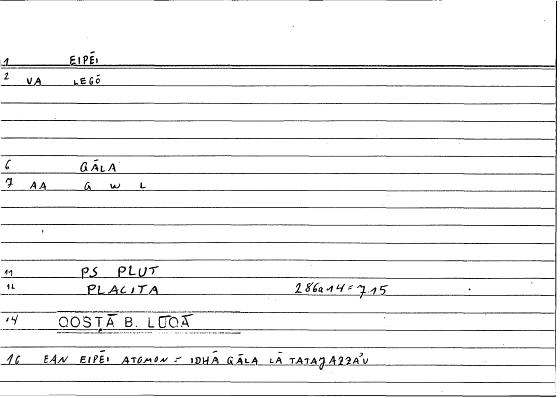 1 EIPĒI
2 VA LEGŌ
6 QĀLA
7 AA Q W L
11 PS PLUT
12 PLACITA 286a14=7,15
14 QOSṬĀ B. LŪQĀ
16 EAN EIPĒI ATOMON = IDHĀ QĀLA LĀ